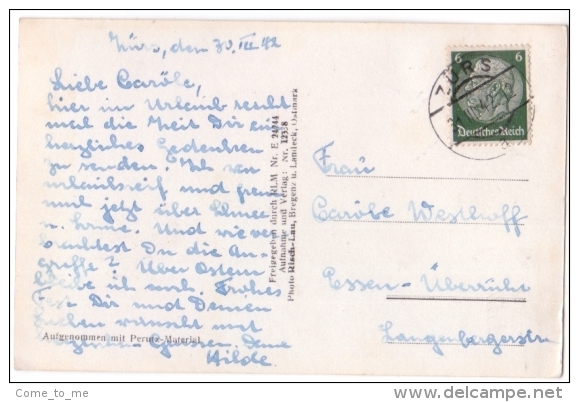 Zürs, den 30. III 42
Liebe Caróle,
hier im Urlaub reicht
mal die Zeit Dir ein
herzliches Gedenken
zu senden. Ich war
urlaubsreif und freue
mich jetzt über Schnee
u. Sonne. Und wie ver
brachtest Du die An-
griffe? Über Ostern
bleibe ich noch. Frohes
Fest Dir und Deinen
Lieben wünscht mit
Grüssen Deine
Hilde.
Aufgenommen mit Perutz-Material
Freigegeben durch RLM Nr. E 24744
Aufnahme und Verlag: Nr. 12358
Photo Risch-Lau, Bregenz u. Landeck, Ostmark
6 6
Deutsches Reich
ZÜRS
Frau
Caróle Westhoff
Essen-Überruhr
Langenbergerstr.
Come_to_me
delcampe.net